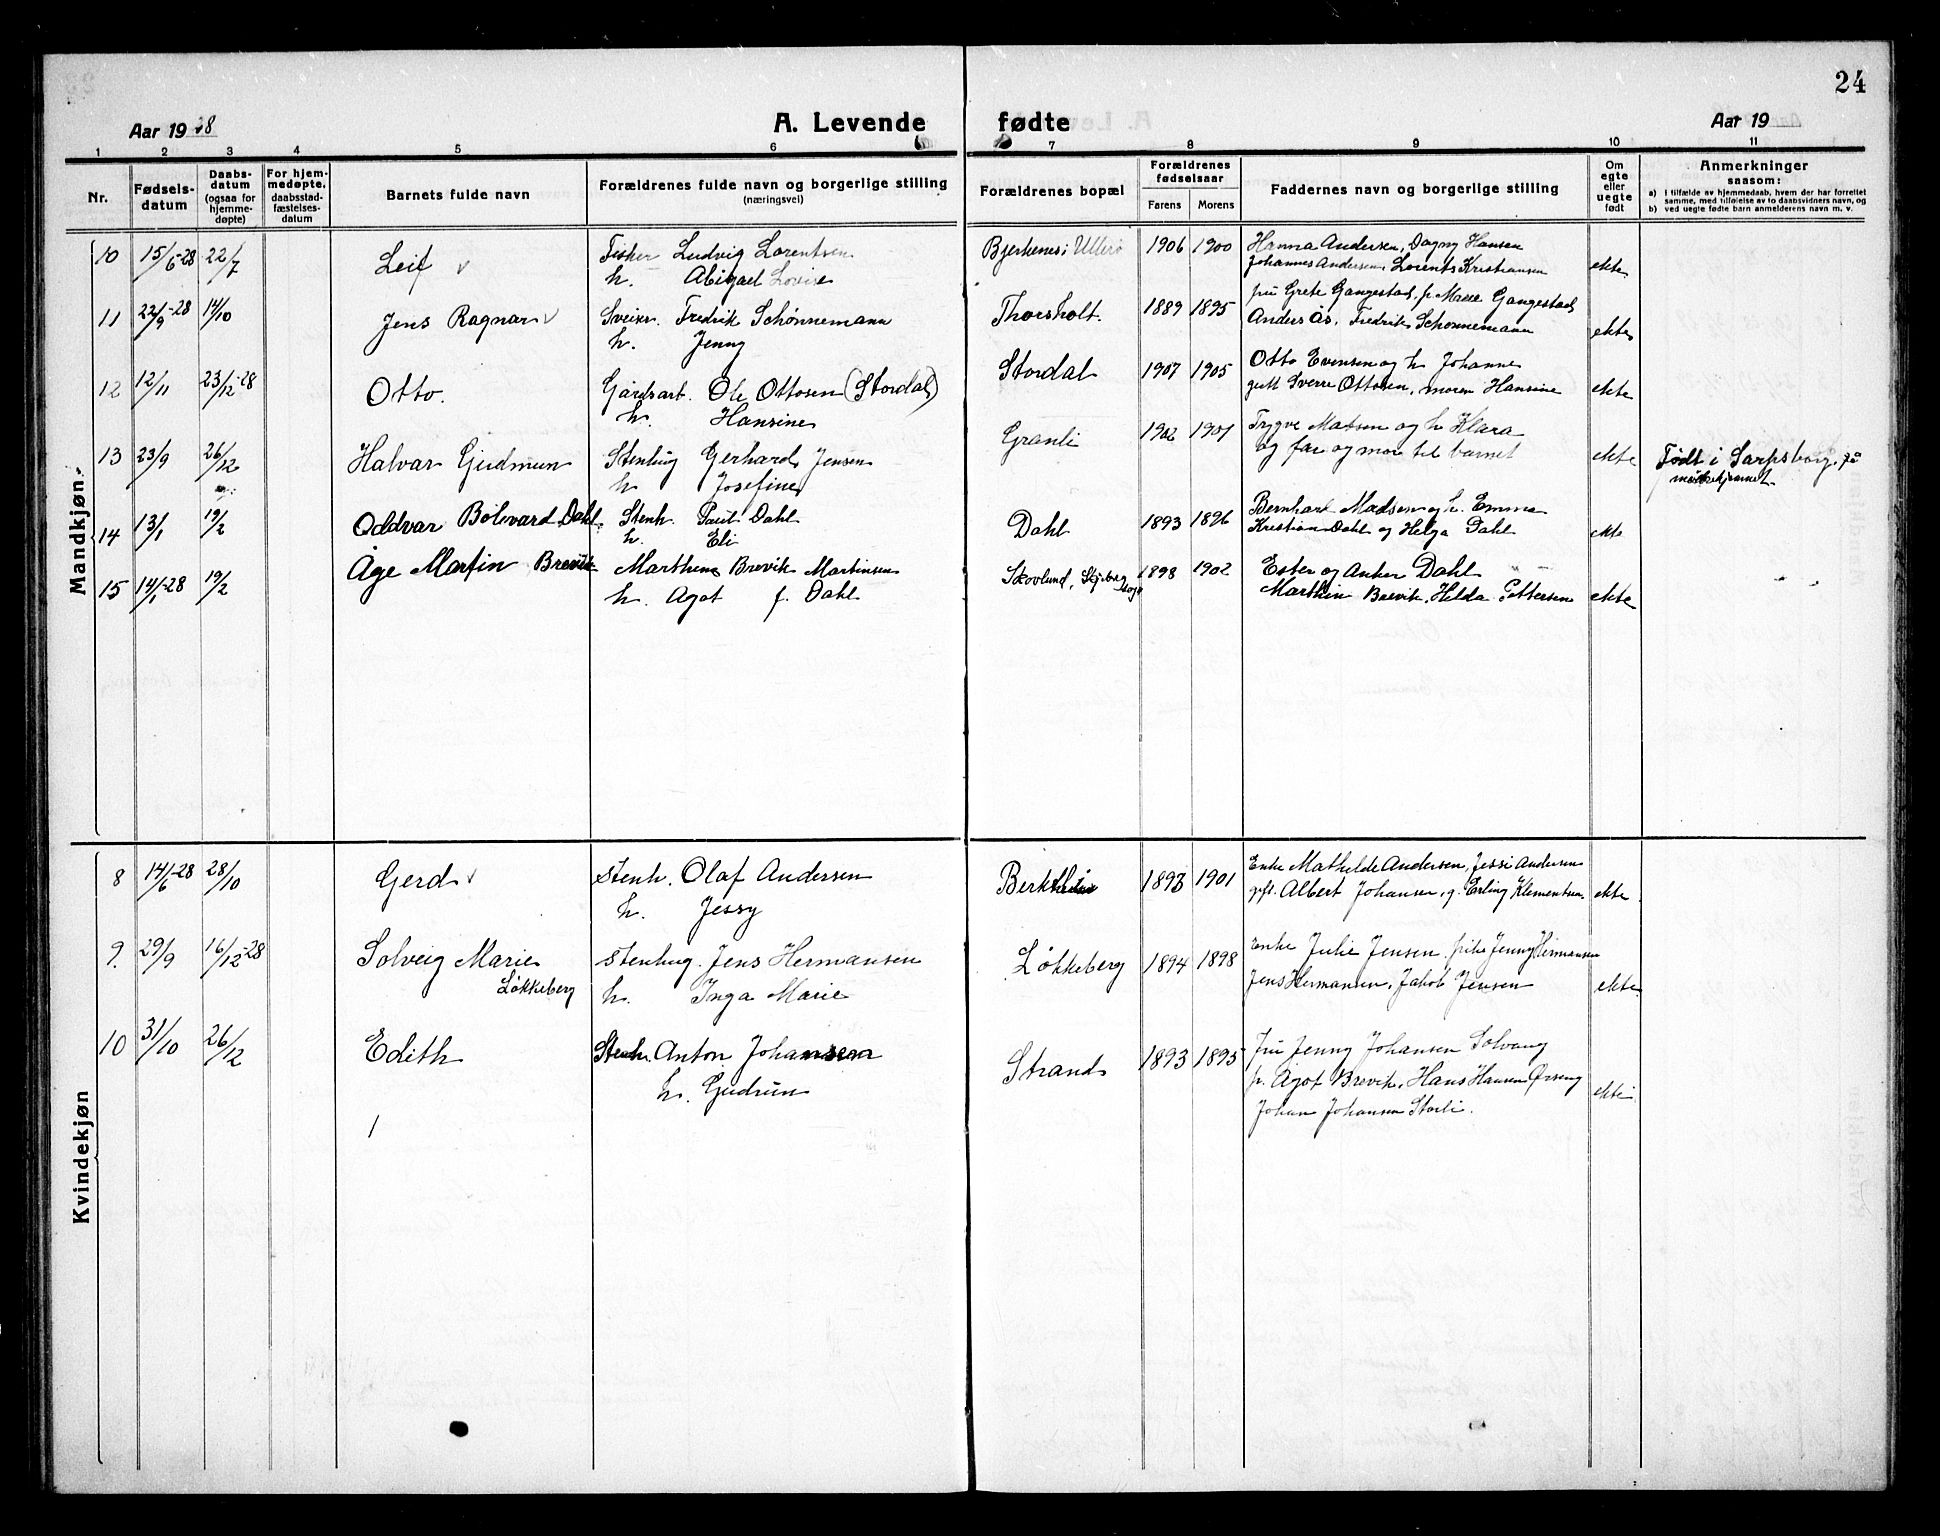 24
Aar 1928
A. Levende fødte
Aar 19
1 2 3 4 5 6 7 8 9 10 11
Nr.
Fødselsdatum
Daabsdatum (ogsaa for hjemmedøpte)
For hjemmedøpte, daabsstadfæstelsesdatum
Barnets fulde navn
Forældrenes fulde navn og borgerlige stilling
(næringsvei)
Forældrenes bopæl
Forældrenes fødselsaar
Farens Morens
Faddernes navn og borgerlige stilling
Om egte eller uegte født
Anmerkninger
saasom:
a) i tilfælde av hjemmedaab, hvem der har forrettet
samme, med tilføielse av to daabsvidners navn, og
b) ved uegte fødte barn anmelderens navn m. v.
Mandkjøn.
10 15/6-28 22/7 Leif Fisker Ludvig Lorentsen Bjerkenes i Ullerö 1906 1900 Hanna Andersen, Dagny Hansen
h. Abigael Lovise Johannes Andersen, Lorents Kristiansen ekte
11 22/9-28 14/10 Jens Ragnar Sveiser Fredrik Schønnemann Thorsholt. 1889 1895 fru Grete Gangestad, fr Gangestad
h. Jenny Anders Ås, Fredrik Schønnemann ekte
12 12/11 23/12-28 Otto. Gårdsarb. Ole Ottosen (Stordal) Stordal 1907 1905 Otto Evensen og h Johanne
h. Hansine gutt Sverre Ottosen, moren Hansine ekte
13 23/9 26/12 Halvar Gudmun Stenhug Gerhard Jensen Granli 1902 1901 Trygve Matsen og h Klara
h Josefine og far og mor til barnet ekte Født i Sarpsborg, på
14 13/1 19/2 Oddvar Bølevard Dahl. Stenh. Dahl Dahl 1893 1896 Bernhard Madsen og h. Emma
h. Eli Kristian Dahl og Helga Dahl ekte
15 14/1-28 19/2 Åge Martin Brevik Marthin Brevik Martinsen Skovlund, Skjeberg sogn 1898 1902 Ester og Anker Dahl
h. Agot f. Dahl Marthin Brevik, Helda Pettersen ekte
Kvindekjøn
8 14/6-28 28/10 Gerd Stenh. Olaf Andersen 1893 1901 Enke Mathilde Andersen, Jessi Andersen
h. Jessy gift. Albert Johansen, g. Erling Klementsen ekte
9. 29/9 16/12-28 Solveig Marie Stenhug. Jens Hermansen Løkkeberg 1894 1898 Enke Julie Jensen, frk. Jenny Hermansen
Løkkeberg h. Inga Marie Jens Hermansen, Jakob Jensen ekte.
10 31/10 26/12 Edith Stenh. Anton Johansen Strand 1893 1895 Fru Jenny Johansen Solvang
h. Gudrun fr. Agot Brevik, Hans Hansen Ørseng ekte
Johan Johansen Storli.